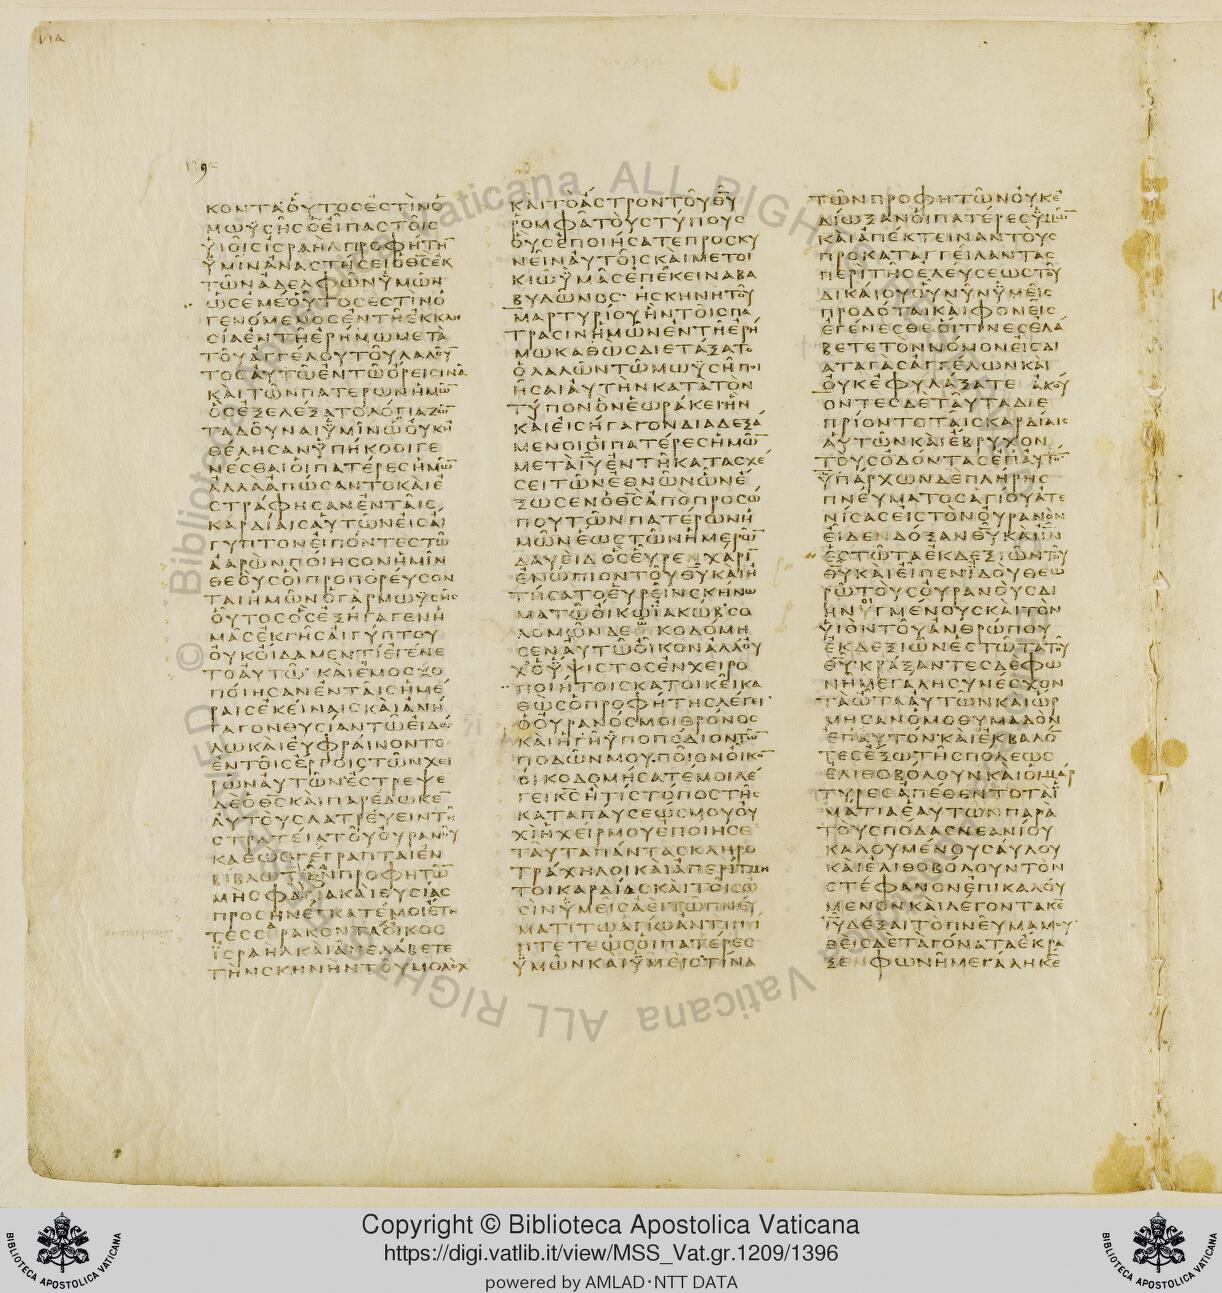 ΚΟΝΤΑΟΥΤΟΣΕΣΤΙΝΟ
ΜΩΥΣΗΣΟΕΙΠΑΣΤΟΙΣ
ΥΙΟΙΣΙΣΡΑΗΛΠΡΟΦΗΤΗ
ΥΜΙΝΑΝΑΣΤΗΣΕΙΟΘΣΕΚ
ΤΩΝΑΔΕΛΦΩΝΥΜΩΝ
ΩΣΕΜΕΟΥΤΟΣΕΣΤΙΝΟ
ΓΕΝΟΜΕΝΟΣΕΝΤΗΕΚΚΛΗ
ΣΙΑΕΝΤΗΕΡΗΜΩΜΕΤΑ
ΤΟΥΑΓΓΕΛΟΥΤΟΥΛΑΛΟΥ
ΤΟΣΑΥΤΩΕΝΤΩΟΡΕΙΣΙΝΑ
ΚΑΙΤΩΝΠΑΤΕΡΩΝΗΜΩ
ΟΣΕΞΕΛΕΞΑΤΟΛΟΓΙΑΖΩ
ΤΑΔΟΥΝΑΙΥΜΙΝΩΟΥΚΗ
ΘΕΛΗΣΑΝΥΠΗΚΟΟΙΓΕ
ΝΕΣΘΑΙΟΙΠΑΤΕΡΕΣΗΜΩ
ΑΛΛΑΑΠΩΣΑΝΤΟΚΑΙΕ
ΣΤΡΑΦΗΣΑΝΕΝΤΑΙΣ
ΚΑΡΔΙΑΙΣΑΥΤΩΝΕΙΣΑΙ
ΓΥΠΤΟΝΕΙΠΟΝΤΕΣΤΩ
ΑΑΡΩΝΠΟΙΗΣΟΝΗΜΙΝ
ΘΕΟΥΣΟΙΠΡΟΠΟΡΕΥΣΟΝ
ΤΑΙΗΜΩΝΟΓΑΡΜΩΥΣΗΣ
ΟΥΤΟΣΟΣΕΞΗΓΑΓΕΝΗ
ΜΑΣΕΚΓΗΣΑΙΓΥΠΤΟΥ
ΟΥΚΟΙΔΑΜΕΝΤΙΕΓΕΝΕ
ΤΟΑΥΤΩΚΑΙΕΜΟΣΧΟ
ΠΟΙΗΣΑΝΕΝΤΑΙΣΗΜΕ
ΡΑΙΣΕΚΕΙΝΑΙΣΚΑΙΑΝΗ
ΓΑΓΟΝΘΥΣΙΑΝΤΩΕΙΔΩ
ΛΩΚΑΙΕΥΦΡΑΙΝΟΝΤΟ
ΕΝΤΟΙΣΕΡΓΟΙΣΤΩΝΧΕΙ
ΡΩΝΑΥΤΩΝΕΣΤΡΕΨΕ
ΔΕΟΘΣΚΑΙΠΑΡΕΔΩΚΕ
ΑΥΤΟΥΣΛΑΤΡΕΥΕΙΝΤΗ
ΣΤΡΑΤΕΙΑΤΟΥΟΥΡΑΝΟΥ
ΚΑΘΩΣΓΕΓΡΑΠΤΑΙΕΝ
ΒΙΒΛΩΤΩΝΠΡΟΦΗΤΩ
ΜΗΣΦΑΓΙΑΚΑΙΘΥΣΙΑΣ
ΠΡΟΣΗΝΕΓΚΑΤΕΜΟΙΕΤΗ
ΤΕΣΣΕΡΑΚΟΝΤΑΟΙΚΟΣ
ΙΣΡΑΗΛΚΑΙΑΝΕΛΑΒΕΤΕ
ΤΗΝΣΚΗΝΗΝΤΟΥΜΟΛΟΧ
ΚΑΙΤΟΑΣΤΡΟΝΤΟΥΘΥ
ΡΟΜΦΑΤΟΥΣΤΥΠΟΥΣ
ΟΥΣΕΠΟΙΗΣΑΤΕΠΡΟΣΚΥ
ΝΕΙΝΑΥΤΟΙΣΚΑΙΜΕΤΟΙ
ΚΙΩΥΜΑΣΕΠΕΚΕΙΝΑΒΑ
ΒΥΛΩΝΟΣΗΣΚΗΝΗΤΟΥ
ΜΑΡΤΥΡΙΟΥΗΝΤΟΙΣΠΑ
ΤΡΑΣΙΝΗΜΩΝΕΝΤΗΕΡΗ
ΜΩΚΑΘΩΣΔΙΕΤΑΞΑΤΟ
ΟΛΑΛΩΝΤΩΜΩΥΣΗΠΟΙ
ΗΣΑΙΑΥΤΗΝΚΑΤΑΤΟΝ
ΤΥΠΟΝΟΝΕΩΡΑΚΕΙΗΝ
ΚΑΙΕΙΣΗΓΑΓΟΝΔΙΑΔΕΞΑ
ΜΕΝΟΙΟΙΠΑΤΕΡΕΣΗΜΩ
ΜΕΤΑΙΥΕΝΤΗΚΑΤΑΣΧΕ
ΣΕΙΤΩΝΕΘΝΩΝΩΝΕ
ΞΩΣΕΝΟΘΣΑΠΟΠΡΟΣΩ
ΠΟΥΤΩΝΠΑΤΕΡΩΝΗ
ΜΩΝΕΩΣΤΩΝΗΜΕΡΩ
ΔΑΥΕΙΔΟΣΕΥΡΕΝΧΑΡΙ
ΕΝΩΠΙΟΝΤΟΥΘΥΚΑΙΗ
ΤΗΣΑΤΟΕΥΡΕΙΝΣΚΗΝΩ
ΜΑΤΩΟΙΚΩΙΑΚΩΒΣΟ
ΛΟΜΩΝΔΕΟΙΚΟΔΟΜΗ
ΣΕΝΑΥΤΩΟΙΚΟΝΑΛΛΟΥ
ΧΟΥΨΙΣΤΟΣΕΝΧΕΙΡΟ
ΠΟΙΗΤΟΙΣΚΑΤΟΙΚΕΙΚΑ
ΘΩΣΟΠΡΟΦΗΤΗΣΛΕΓΕΙ
ΟΟΥΡΑΝΟΣΜΟΙΘΡΟΝΟΣ
ΚΑΙΗΓΗΥΠΟΠΟΔΙΟΝΤΩ
ΠΟΔΩΝΜΟΥΠΟΙΟΝΟΙΚΟ
ΟΙΚΟΔΟΜΗΣΑΤΕΜΟΙΛΕ
ΓΕΙΚΣΗΤΙΣΤΟΠΟΣΤΗΣ
ΚΑΤΑΠΑΥΣΕΩΣΜΟΥΟΥ
ΧΙΗΧΕΙΡΜΟΥΕΠΟΙΗΣΕ
ΤΑΥΤΑΠΑΝΤΑΣΚΛΗΡΟ
ΤΡΑΧΗΛΟΙΚΑΙΑΠΕΡΙΤΜΗ
ΤΟΙΚΑΡΔΙΑΣΚΑΙΤΟΙΣΩ
ΣΙΝΥΜΕΙΣΑΕΙΤΩΠΝΕΥ
ΜΑΤΙΤΩΑΓΙΩΑΝΤΙΠΙ
ΠΤΕΤΕΩΣΟΙΠΑΤΕΡΕΣ
ΥΜΩΝΚΑΙΥΜΕΙΣΤΙΝΑ
ΤΩΝΠΡΟΦΗΤΩΝΟΥΚΕ
ΔΙΩΞΑΝΟΙΠΑΤΕΡΕΣΥΜΩ
ΚΑΙΑΠΕΚΤΕΙΝΑΝΤΟΥΣ
ΠΡΟΚΑΤΑΓΓΕΙΛΑΝΤΑΣ
ΠΕΡΙΤΗΣΕΛΕΥΣΕΩΣΤΟΥ
ΔΙΚΑΙΟΥΟΥΝΥΝΥΜΕΙΣ
ΠΡΟΔΟΤΑΙΚΑΙΦΟΝΕΙΣ
ΕΓΕΝΕΣΘΕΟΙΤΙΝΕΣΕΛΑ
ΒΕΤΕΤΟΝΝΟΜΟΝΕΙΣΔΙ
ΑΤΑΓΑΣΑΓΓΕΛΩΝΚΑΙ
ΟΥΚΕΦΥΛΑΞΑΤΕΑΚΟΥ
ΟΝΤΕΣΔΕΤΑΥΤΑΔΙΕ
ΠΡΙΟΝΤΟΤΑΙΣΚΑΡΔΙΑΙΣ
ΑΥΤΩΝΚΑΙΕΒΡΥΧΟΝ
ΤΟΥΣΟΔΟΝΤΑΣΕΠΑΥΤΟ
ΥΠΑΡΧΩΝΔΕΠΛΗΡΗΣ
ΠΝΕΥΜΑΤΟΣΑΓΙΟΥΑΤΕ
ΝΙΣΑΣΕΙΣΤΟΝΟΥΡΑΝΟΝ
ΕΙΔΕΝΔΟΞΑΝΘΥΚΑΙΙΝ
ΕΣΤΩΤΑΕΚΔΕΞΙΩΝΤΟΥ
ΘΥΚΑΙΕΙΠΕΝΙΔΟΥΘΕΩ
ΡΩΤΟΥΣΟΥΡΑΝΟΥΣΔΙ
ΗΝΥΓΜΕΝΟΥΣΚΑΙΤΟΝ
ΥΙΟΝΤΟΥΑΝΘΡΩΠΟΥ
ΕΚΔΕΞΙΩΝΕΣΤΩΤΑΤΟΥ
ΘΥΚΡΑΞΑΝΤΕΣΔΕΦΩ
ΝΗΜΕΓΑΛΗΣΥΝΕΣΧΟΝ
ΤΑΩΤΑΑΥΤΩΝΚΑΙΩΡ
ΜΗΣΑΝΟΜΟΘΥΜΑΔΟΝ
ΕΠΑΥΤΟΝΚΑΙΕΚΒΑΛΟ
ΤΕΣΕΞΩΤΗΣΠΟΛΕΩΣ
ΕΛΙΘΟΒΟΛΟΥΝΚΑΙΟΙΜΑΡ
ΤΥΡΕΣΑΠΕΘΕΝΤΟΤΑΙ
ΜΑΤΙΑΕΑΥΤΩΝΠΑΡΑ
ΤΟΥΣΠΟΔΑΣΝΕΑΝΙΟΥ
ΚΑΛΟΥΜΕΝΟΥΣΑΥΛΟΥ
ΚΑΙΕΛΙΘΟΒΟΛΟΥΝΤΟΝ
ΣΤΕΦΑΝΟΝΕΠΙΚΑΛΟΥ
ΜΕΝΟΝΚΑΙΛΕΓΟΝΤΑΚΕ
ΙΥΔΕΞΑΙΤΟΠΝΕΥΜΑΜΟΥ
ΘΕΙΣΔΕΤΑΓΟΝΑΤΑΕΚΡΑ
ΞΕΝΦΩΝΗΜΕΓΑΛΗΚΕ
Copyright © Biblioteca Apostolica Vaticana
https://digi.vatlib.it/view/MSS_Vat.gr.1209/1396
powered by AMLAD·NTT DATA
BIBLIOTECA APOSTOLICA VATICANA
BIBLIOTECA APOSTOLICA VATICANA